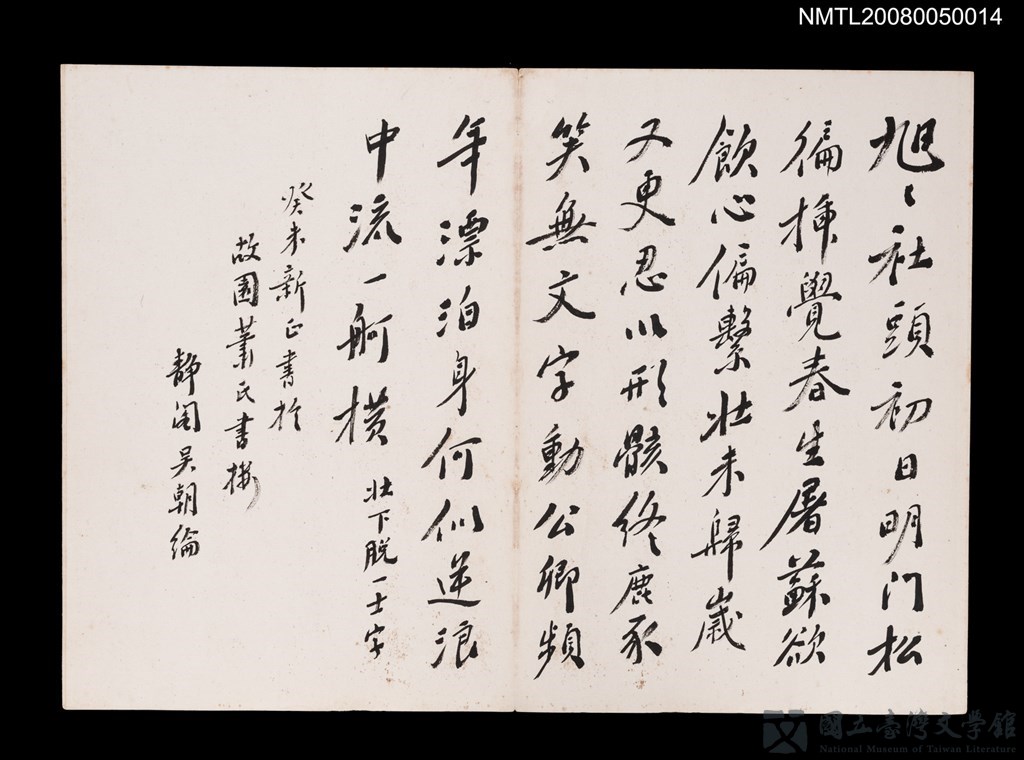 NMTL20080050014
旭〻社頭初日明门松
徧揷覺春生屠蘇欲
飲心偏繫壯未歸歲
又更忍以形骸終鹿豕
笑無文字動公卿頻
年漂泊身何似逆浪
中流一舸横 壯下脱一士字
癸未新正書於
故園蕭氏書樓
靜閣吳朝綸
國立臺灣文學館
National Museum of Taiwan Literature